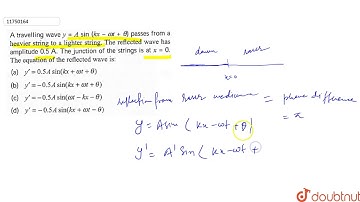 11750164
A travelling wave y = A sin (kx − ωt + θ) passes from a
heavier string to a lighter string. The reflected wave has
amplitude 0.5 A. The junction of the strings is at x = 0.
The equation of the reflected wave is:
(a) y' = 0.5A sin(kx + ωt + θ)
(b) y' = −0.5A sin(kx + ωt + θ)
(c) y' = −0.5A sin(ωt − kx − θ)
(d) y' = −0.5A sin(kx + ωt − θ)
denser rarer
x=0
reflection from rarer medium = phase difference
= π
y = A sin ( kx − ωt + θ)
y' = A' sin ( kx − ωt +
doubtnut